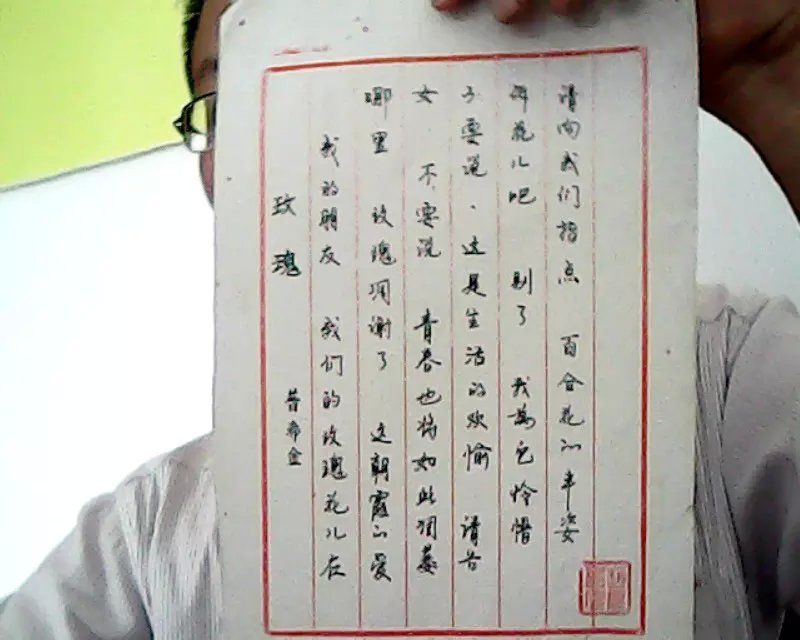 玫瑰 普希金
我的朋友 我们的玫瑰花儿在
哪里 玫瑰凋谢了 这朝霞的爱
女 不要说 青春也将如此凋萎
不要说、这是生活的欢愉 请告
诉花儿吧 别了 我為它怜惜
请向我们指点 百合花的丰姿